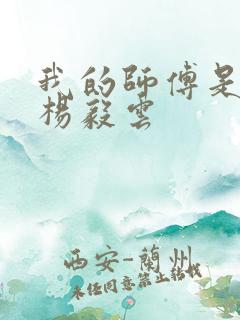 我的師傅是
楊毅雲
西安-蘭州
未任同意禁止結伐